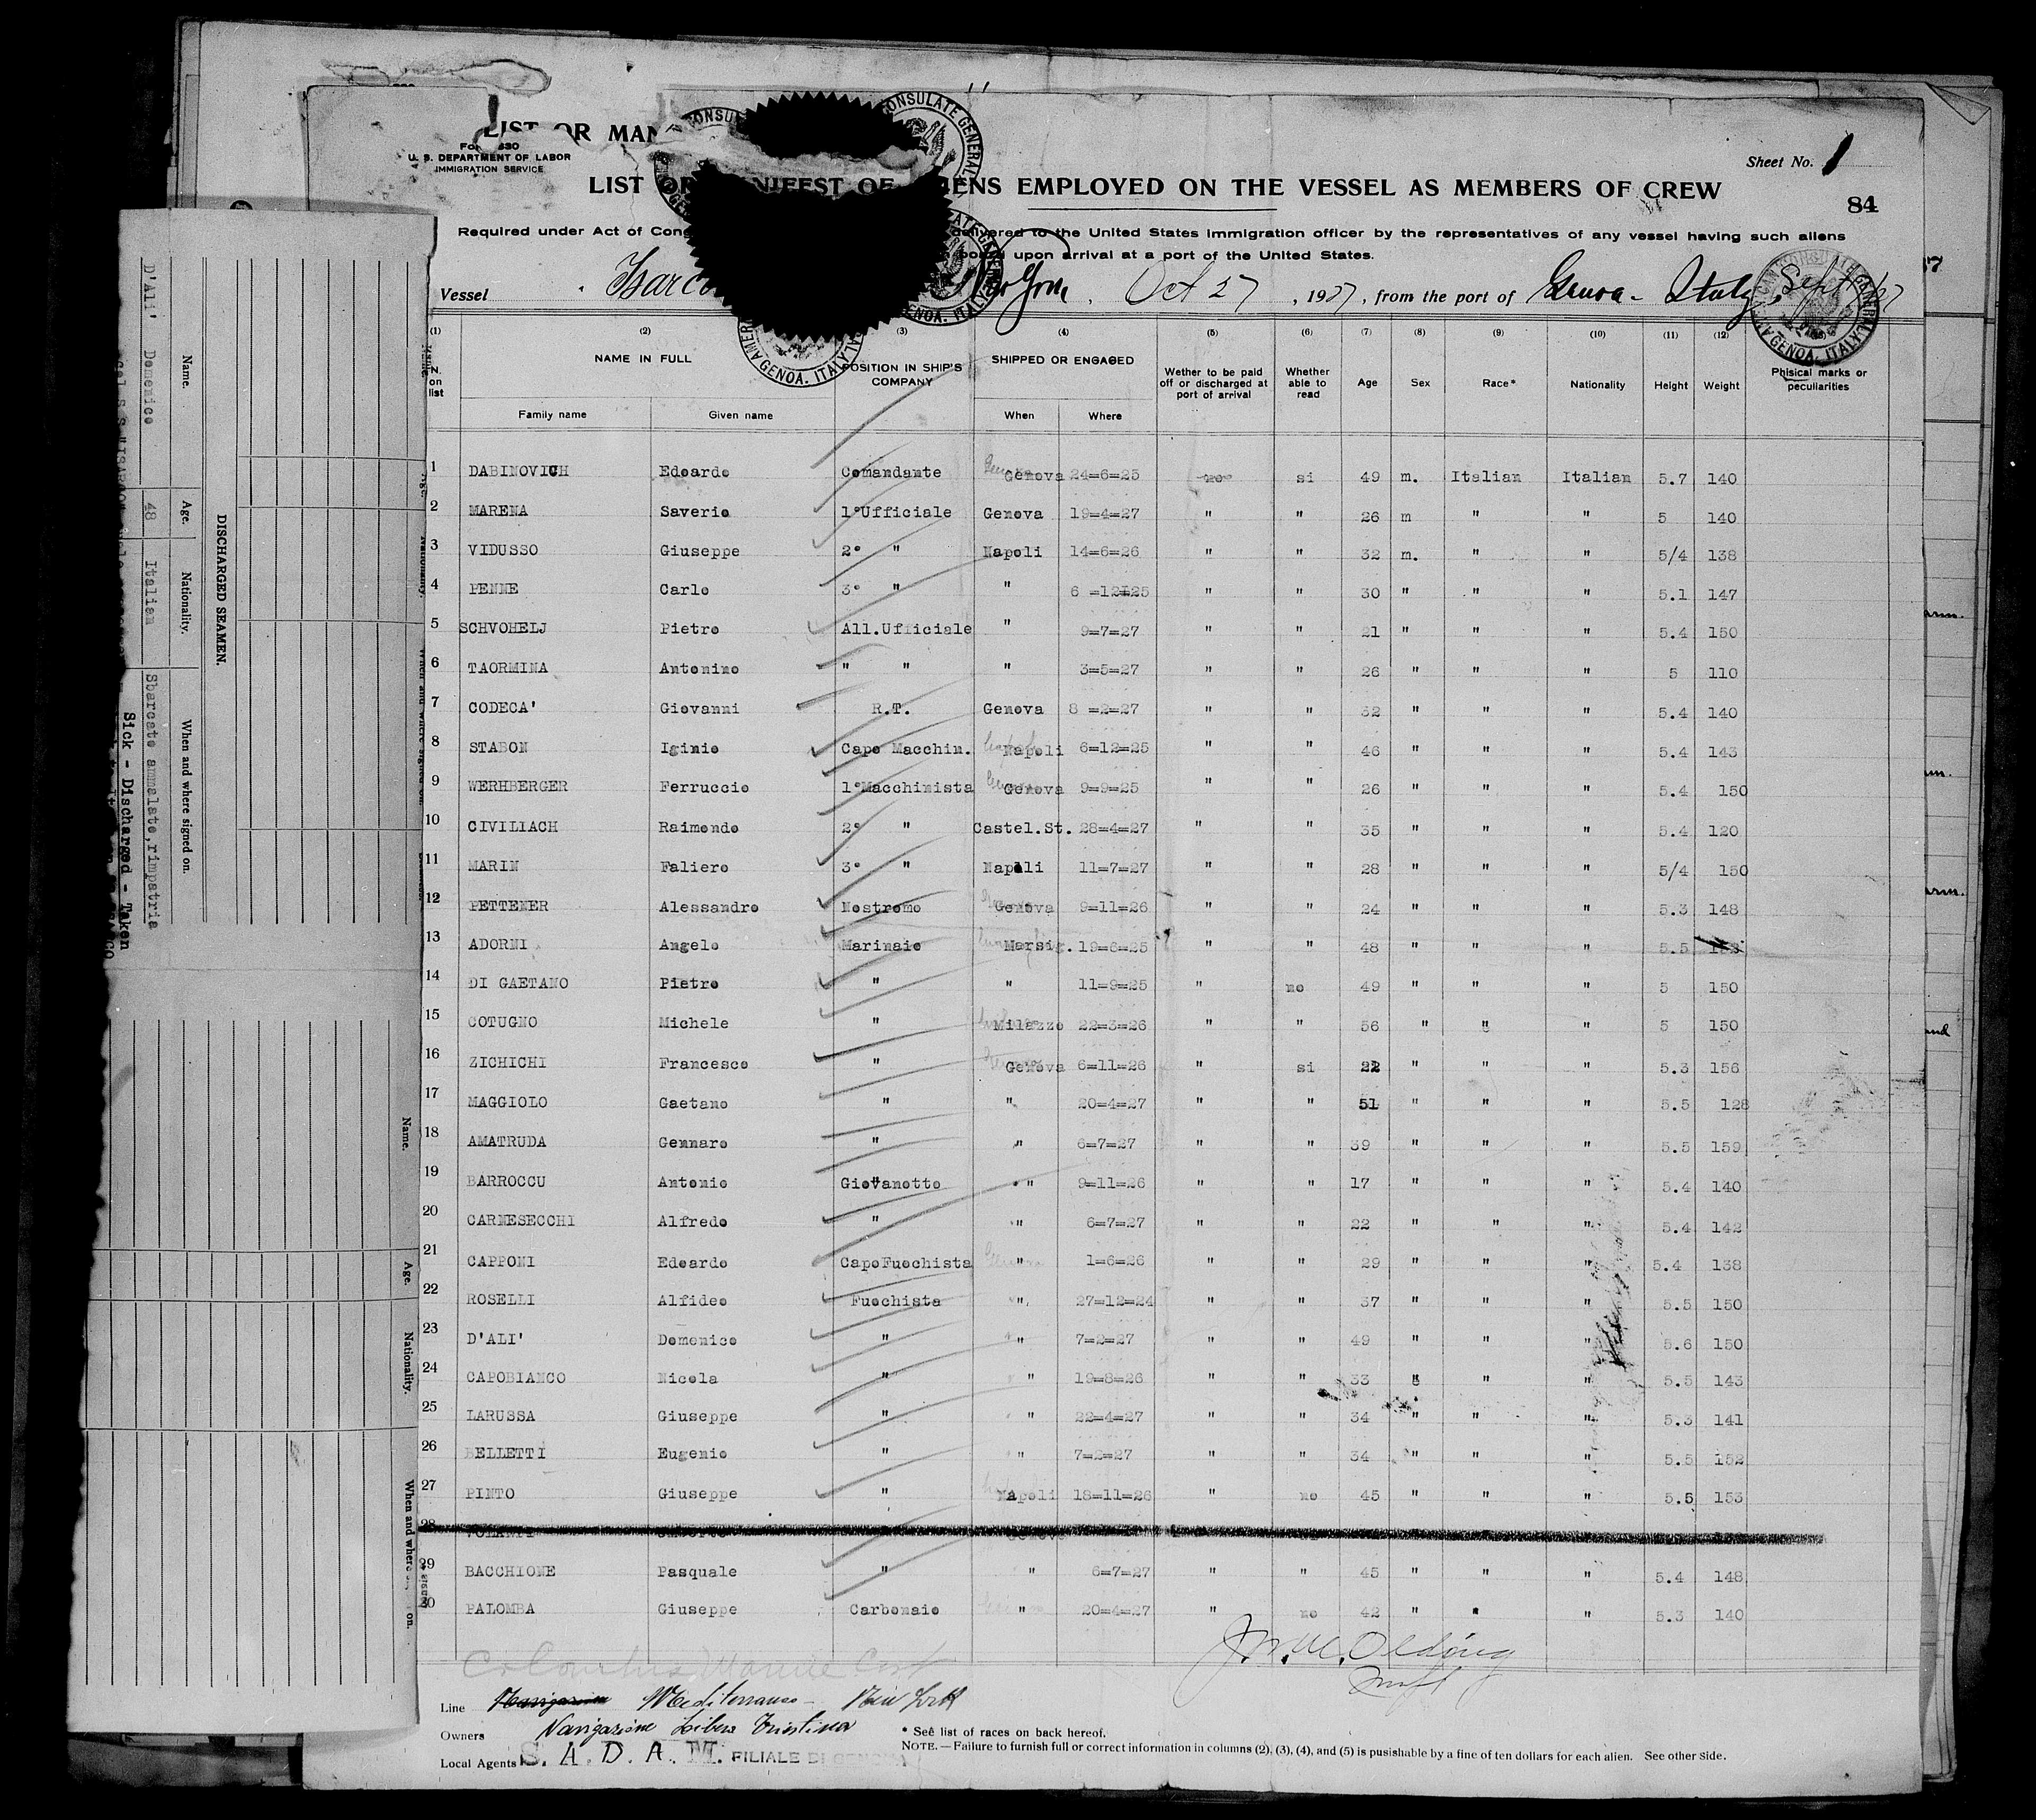 LIST OR MAN
Form 630
U. S. DEPARTMENT OF LABOR
IMMIGRATION SERVICE
Sheet No. 1
LIST OR MANIFEST OF ALIENS EMPLOYED ON THE VESSEL AS MEMBERS OF CREW
84
Required under Act of Cong delivered to the United States Immigration officer by the representatives of any vessel having such aliens
upon arrival at a port of the United States.
Vessel Isarco New York, Oct 27, 1927, from the port of Genoa - Italy, Sept 27
(1) (2) (3) (4) (5) (6) (7) (8) (9) (10) (11) (12)
N. on list NAME IN FULL POSITION IN SHIP'S COMPANY SHIPPED OR ENGAGED Wether to be paid off or discharged at port of arrival Whether able to read Age Sex Race* Nationality Height Weight Phisical marks or peculiarities
Family name Given name When Where
1 DABINOVICH Edoardo Comandante Genova 24=6=25 no si 49 m. Italian Italian 5.7 140
2 MARENA Saverio 1°Ufficiale Genova 19=4=27 " " 26 m " " 5 140
3 VIDUSSO Giuseppe 2° " Napoli 14=6=26 " " 32 m. " " 5/4 138
4 PENNE Carlo 3° " " 6 =12=25 " " 30 " " " 5.1 147
5 SCHVOHELJ Pietro All.Ufficiale " 9=7=27 " " 21 " " " 5.4 150
6 TAORMINA Antonino " " " 3=5=27 " " 26 " " " 5 110
7 CODECA' Giovanni R.T. Genova 8 =2=27 " " 32 " " " 5.4 140
8 STABON Iginio Capo Macchin. Napoli 6=12=25 " " 46 " " " 5.4 143
9 WERHBERGER Ferruccio 1°Macchinista Genova 9=9=25 " " 26 " " " 5.4 150
10 CIVILIACH Raimondo 2° " Castel.St. 28=4=27 " " 35 " " " 5.4 120
11 MARIN Faliero 3° " Napoli 11=7=27 " " 28 " " " 5/4 150
12 PETTENER Alessandro Nostromo Genova 9=11=26 " " 24 " " " 5.3 148
13 ADORNI Angelo Marinaio Marsig. 19=6=25 " " 48 " " " 5.5
14 DI GAETANO Pietro " " 11=9=25 " no 49 " " " 5 150
15 COTUGNO Michele " Milazzo 22=3=26 " " 56 " " " 5 150
16 ZICHICHI Francesco " Genova 6=11=26 " si 22 " " " 5.3 156
17 MAGGIOLO Gaetano " " 20=4=27 " " 51 " " " 5.5 128
18 AMATRUDA Gennaro " " 6=7=27 " " 39 " " " 5.5 159
19 BARROCCU Antonio Giovanotto " 9=11=26 " " 17 " " " 5.4 140
20 CARNESECCHI Alfredo " " 6=7=27 " " 22 " " " 5.4 142
21 CAPPONI Edoardo CapoFuochista " 1=6=26 " " 29 " " " 5.4 138
22 ROSELLI Alfideo Fuochista " 27=12=24 " " 37 " " " 5.5 150
23 D'ALI' Domenico " " 7=2=27 " " 49 " " " 5.6 150
24 CAPOBIANCO Nicola " " 19=8=26 " " 33 " " " 5.5 143
25 LARUSSA Giuseppe " " 22=4=27 " " 34 " " " 5.3 141
26 BELLETTI Eugenio " " 7=2=27 " " 34 " " " 5.5 152
27 PINTO Giuseppe " Napoli 18=11=26 " no 45 " " " 5.5 153
28
29 BACCHIONE Pasquale " " 6=7=27 " " 45 " " " 5.4 148
30 PALOMBA Giuseppe Carbonaio " 20=4=27 " no 42 " " " 5.3 140
Line Mediterraneo - New York
Owners Navigazione Libera Triestina
Local Agents S. A. D. A. M. FILIALE DI GENOVA
* See list of races on back hereof.
NOTE. — Failure to furnish full or correct information in columns (2), (3), (4), and (5) is pusishable by a fine of ten dollars for each alien. See other side.
DISCHARGED SEAMEN.
Name. Age. Nationality. When and where signed on.
D'Ali' Domenico 48 Italian Sbarcato ammalato, rimpatria
Sick - Discharged - Taken
Name. Age. Nationality. When and where on.
AMERICAN CONSULATE GENERAL GENOA. ITALY